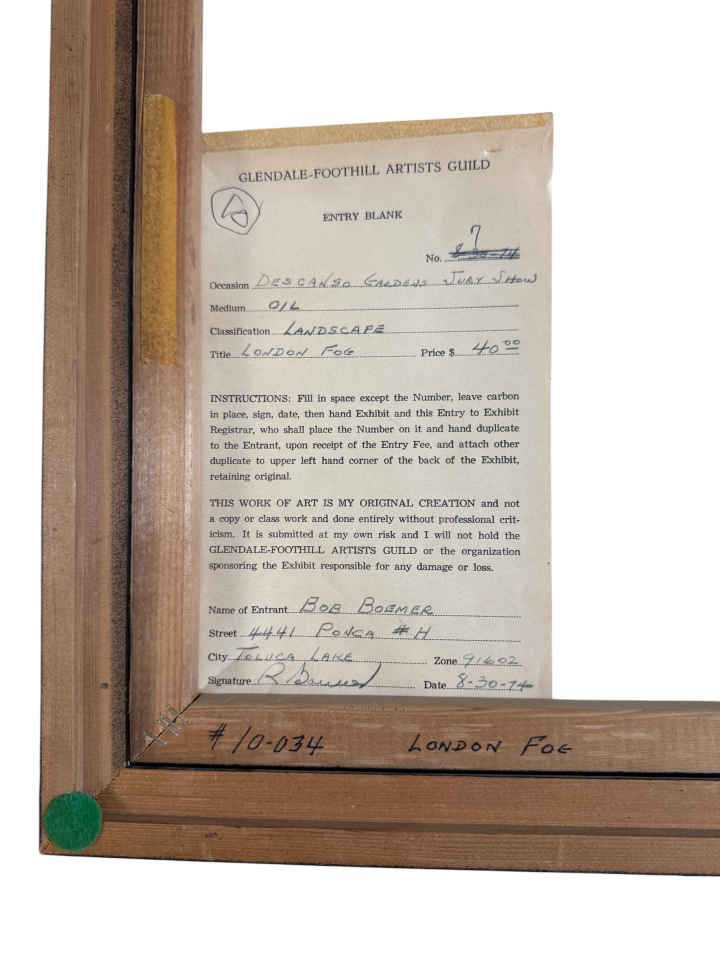 GLENDALE-FOOTHILL ARTISTS GUILD
ENTRY BLANK
7
No. 8-30-74
Occasion DESCANSO GARDENS JURY SHOW
Medium OIL
Classification LANDSCAPE
Title LONDON FOG Price $ 40 00
INSTRUCTIONS: Fill in space except the Number, leave carbon
in place, sign, date, then hand Exhibit and this Entry to Exhibit
Registrar, who shall place the Number on it and hand duplicate
to the Entrant, upon receipt of the Entry Fee, and attach other
duplicate to upper left hand corner of the back of the Exhibit,
retaining original.
THIS WORK OF ART IS MY ORIGINAL CREATION and not
a copy or class work and done entirely without professional crit-
icism. It is submitted at my own risk and I will not hold the
GLENDALE-FOOTHILL ARTISTS GUILD or the organization
sponsoring the Exhibit responsible for any damage or loss.
Name of Entrant BOB BOEMER
Street 4441 PONCA # H
City TOLUCA LAKE Zone 91602
Signature R Boemer Date 8-30-74
# 10-034 LONDON FOG